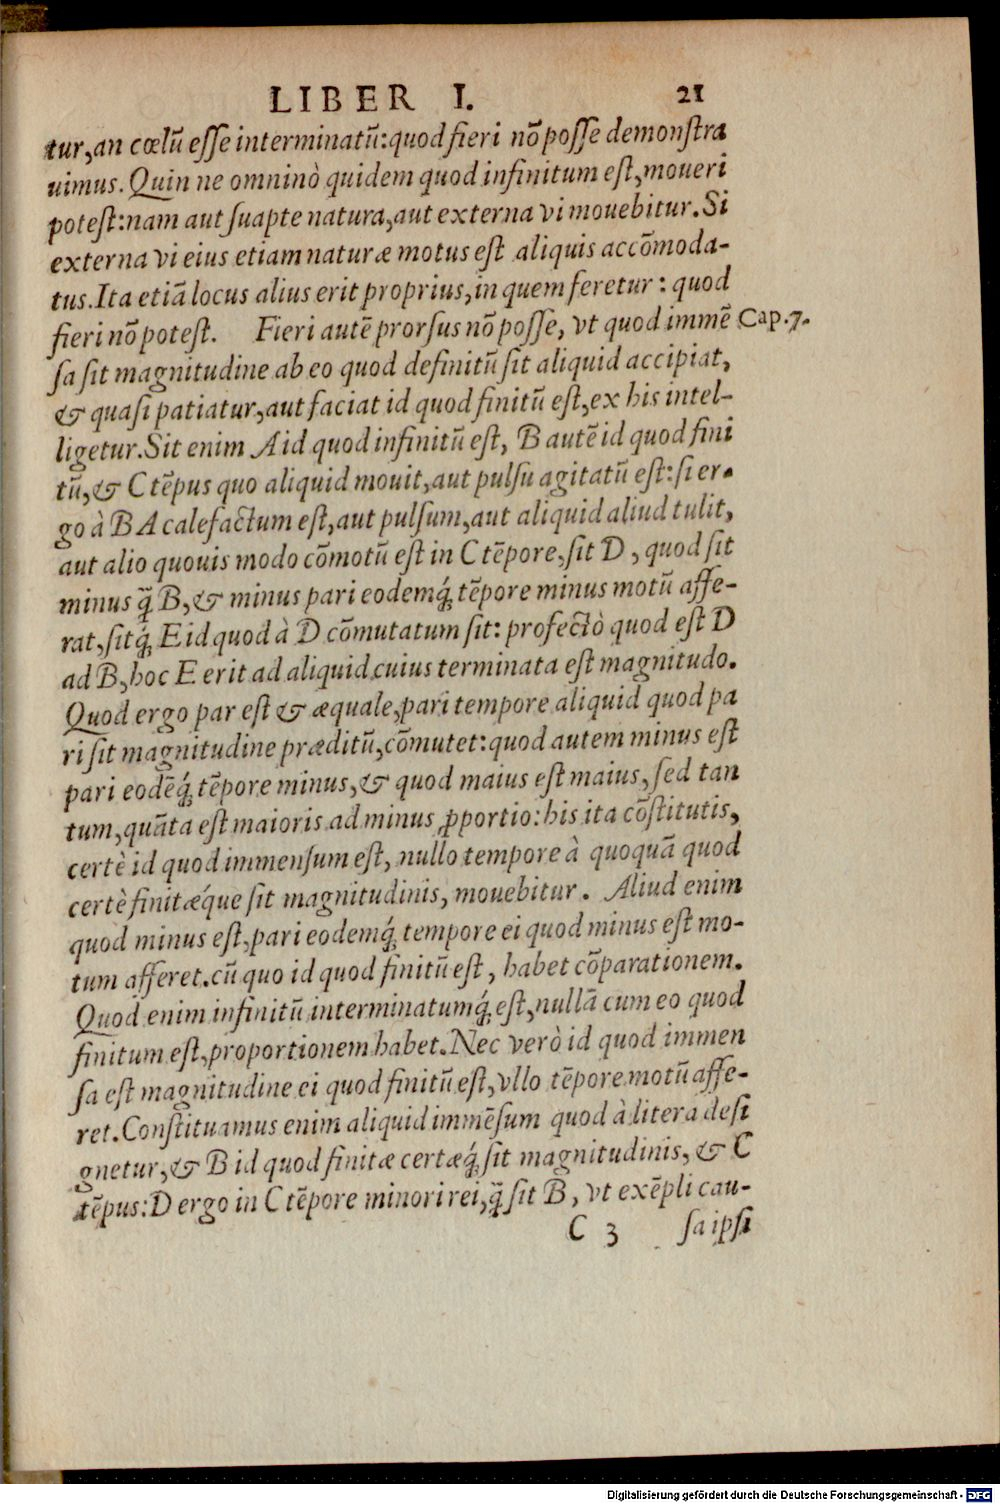 LIBER I. 21
tur,an cœlū eſſe interminatū:quod fieri nõ poſſe demonſtra
uimus. Quin ne omninò quidem quod infinitum eſt, moueri
poteſt:nam aut ſuapte natura,aut externa vi mouebitur. Si
externa vi eius etiam naturæ motus eſt aliquis accõmoda-
tus. Ita etiã locus alius erit proprius,in quem feretur: quod
fieri nõ poteſt. Fieri autẽ prorſus nõ poſſe, vt quod immẽ Cap.7.
ſa ſit magnitudine ab eo quod definitū ſit aliquid accipiat,
& quaſi patiatur,aut faciat id quod finitū eſt,ex his intel-
ligetur. Sit enim A id quod infinitū eſt, B autẽ id quod fini
tū,& C tẽpus quo aliquid mouit,aut pulſu agitatū eſt:ſi er-
go à B A calefactum eſt,aut pulſum,aut aliquid aliud tulit,
aut alio quouis modo cõmotū eſt in C tẽpore,ſit D, quod ſit
minus q̃ B,& minus pari eodemq́; tẽpore minus motū affe-
rat,ſitq́; E id quod à D cõmutatum ſit: profectò quod eſt D
ad B,hoc E erit ad aliquid cuius terminata eſt magnitudo.
Quod ergo par eſt & æquale,pari tempore aliquid quod pa
ri ſit magnitudine præditū,cõmutet:quod autem minus eſt
pari eodẽq́; tẽpore minus,& quod maius eſt maius,ſed tan
tum,quãta eſt maioris ad minus ꝓportio:his ita cõſtitutis,
certè id quod immenſum eſt, nullo tempore à quoquã quod
certè finitǽque ſit magnitudinis, mouebitur. Aliud enim
quod minus eſt,pari eodemq́; tempore ei quod minus eſt mo-
tum afferet.cū quo id quod finitū eſt, habet cõparationem.
Quod enim infinitū interminatumq́; eſt,nullã cum eo quod
finitum eſt,proportionem habet. Nec verò id quod immen
ſa eſt magnitudine ei quod finitū eſt,vllo tẽpore motū affe-
ret. Conſtituamus enim aliquid immẽſum quod à litera deſi
gnetur,& B id quod finitæ certæq́; ſit magnitudinis,& C
tẽpus:D ergo in C tẽpore minori rei,q̃ ſit B, vt exẽpli cau-
C 3 ſa ipſi
Digitalisierung gefördert durch die Deutsche Forschungsgemeinschaft - DFG